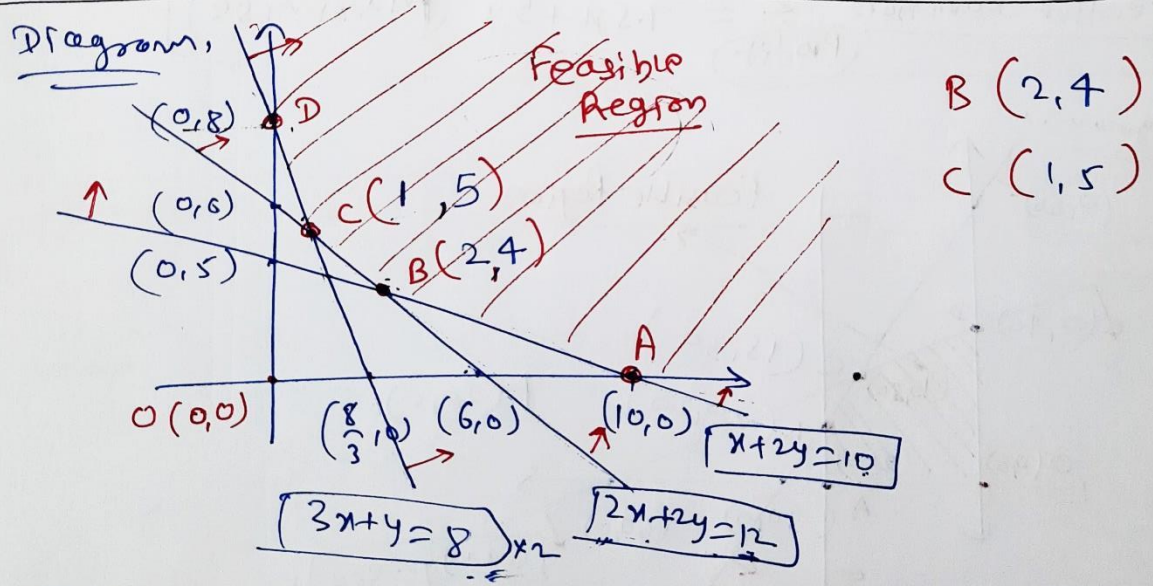 Diagram,
Feasible
Region
B (2,4)
C (1,5)
(0,8)
D
C(1,5)
(0,6)
B(2,4)
(0,5)
A
O(0,0)
(8/3,0)
(6,0)
(10,0)
x+2y=10
3x+y=8 )×2
2x+2y=12